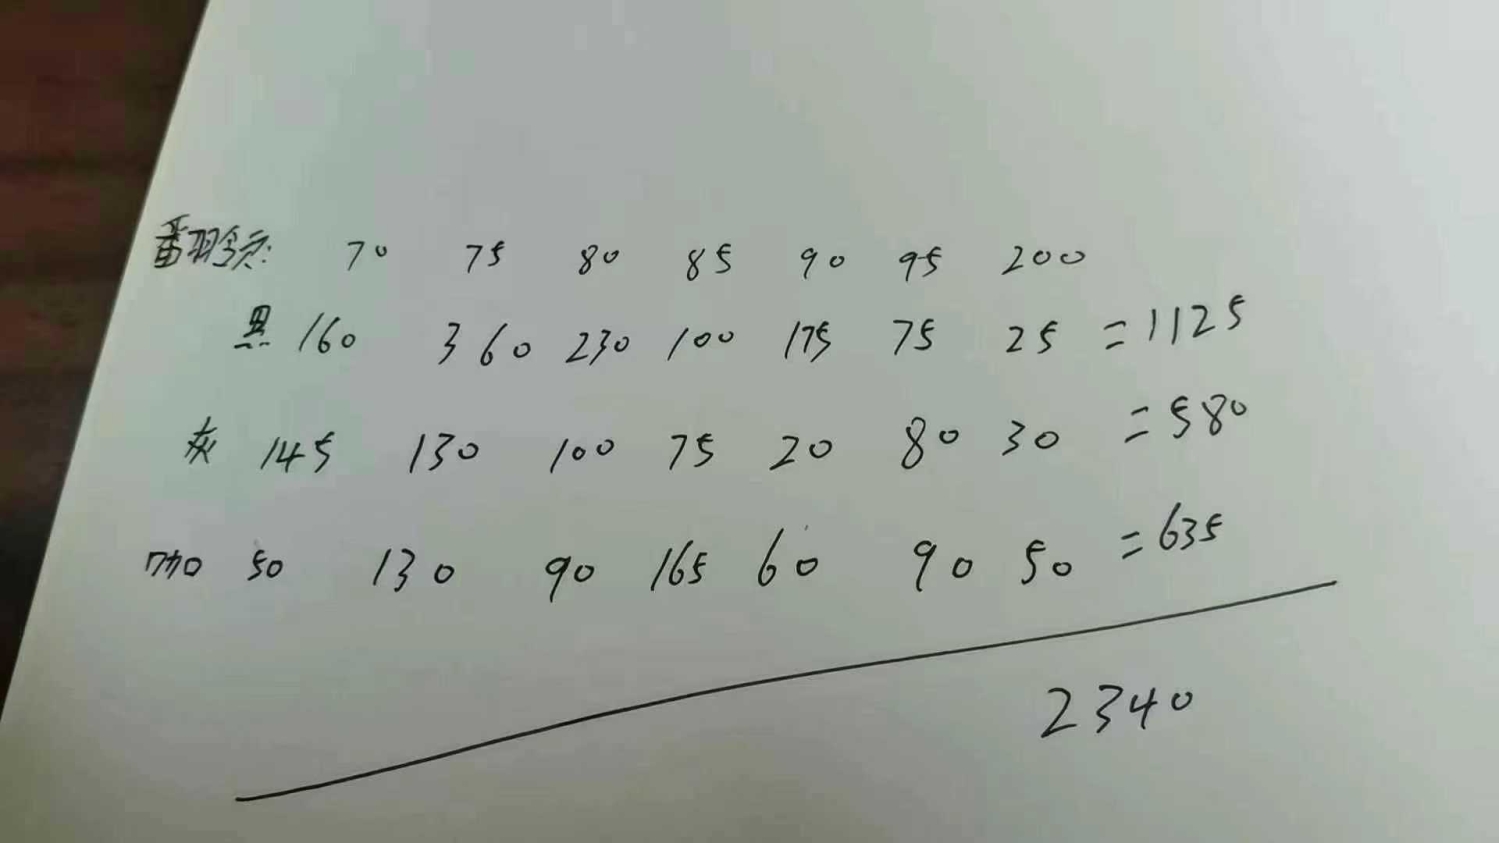 翻领: 70 75 80 85 90 95 200
黑 160 360 230 100 175 75 25 =1125
灰 145 130 100 75 20 80 30 =580
咖 50 130 90 165 60 90 50 =635
2340